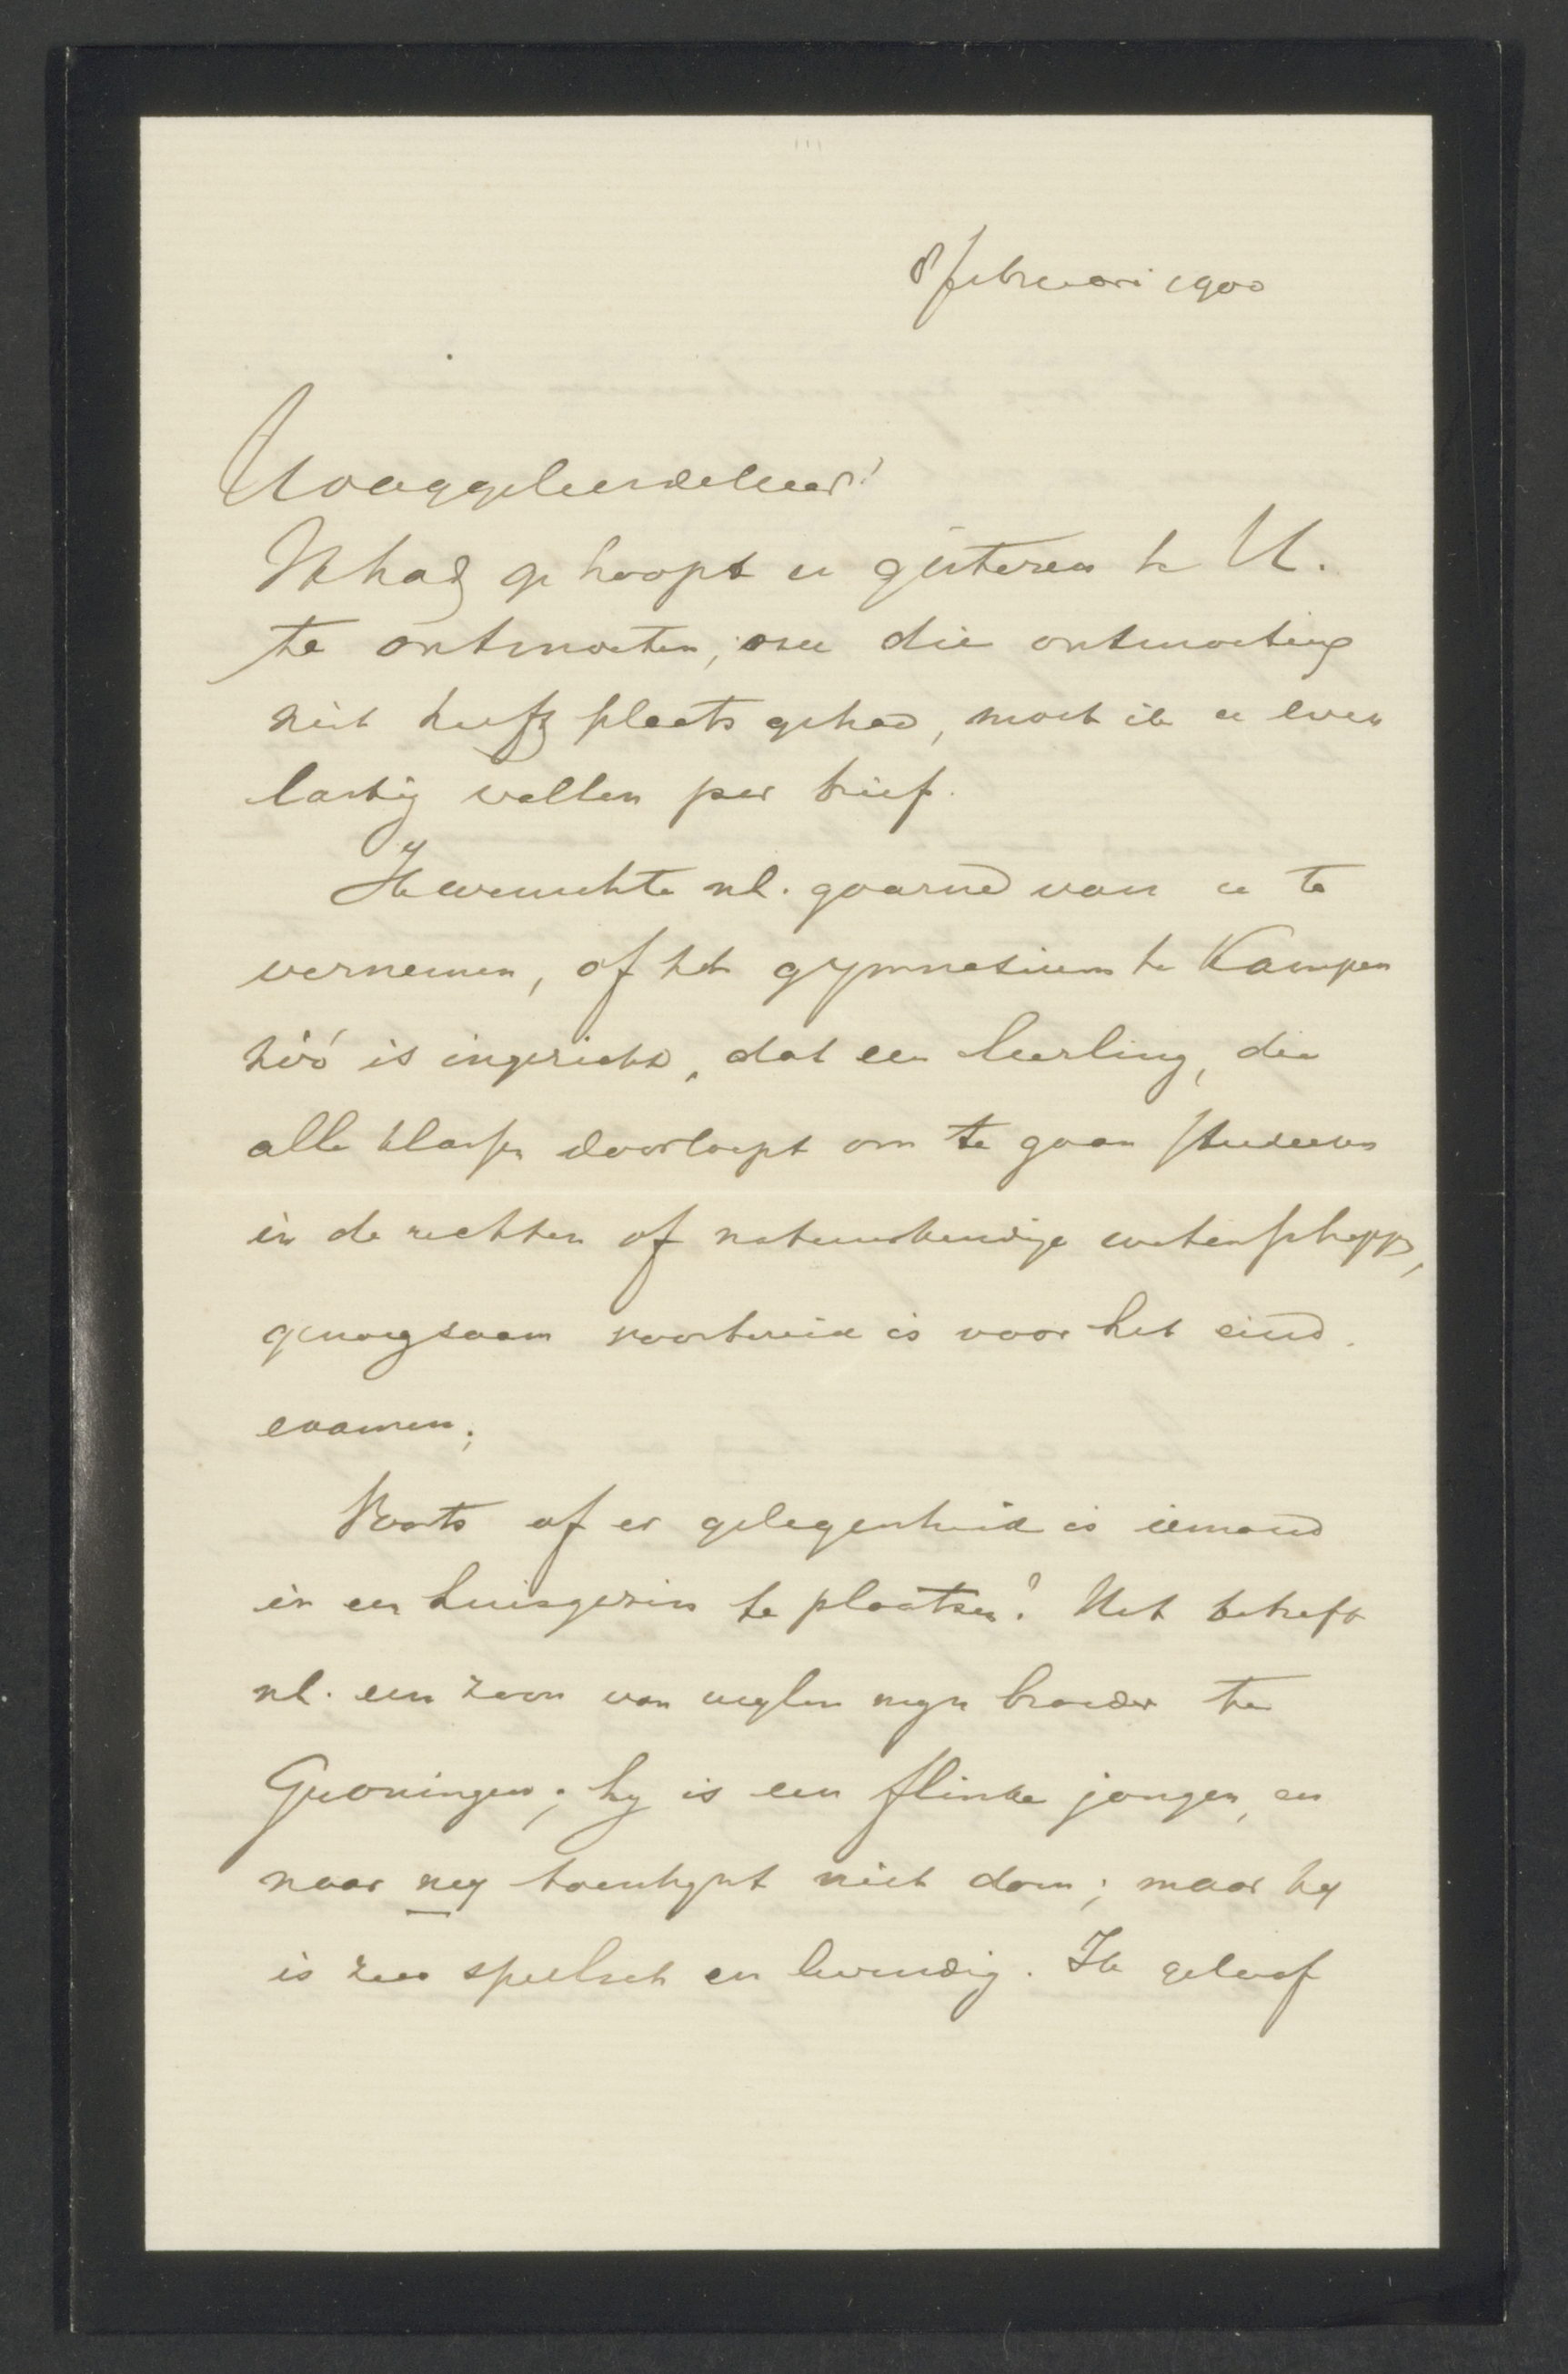 8 februari 1900
Hooggeleerde heer!
Ik had gehoopt u gisteren te U.
te ontmoeten; nu die ontmoeting
niet heeft plaats gehad, moet ik u even
lastig vallen per brief.
Ik wenschte nl. gaarne van u te
vernemen, of het gymnasium te Kampen
zóó is ingericht, dat een leerling, die
alle klassen doorloopt om te gaan studeeren
in de rechten of natuurkundige wetenschapp,
genoegzaam voorbereid is voor het eind
examen;
Voorts of er gelegenheid is iemand
in een huisgezin te plaatsen? Het betreft
nl. een zoon van wylen myn broeder te
Groningen; hy is een flinke jongen, en
naar my toeschynt niet dom; maar hy
is zeer speelsch en levendig. Ik geloof